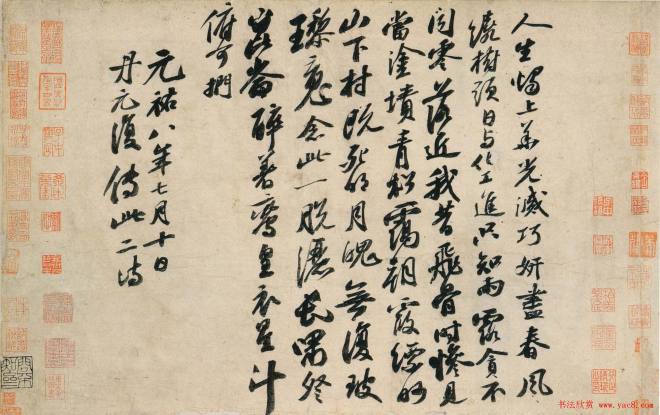 人生燭上華光滅巧妍盡春風
繞樹頭日与化工進只知雨露貪不
聞零落近我昔飛骨時慘見
當塗墳青松靄朝霞縹眇
山下村既死明月魄無復玻
瓈魂念此一脫灑長嘯祭
崑崙醉著鸞皇衣星斗
俯可捫
元祐八年七月十日
丹元復傳此二詩
书法欣赏 www.yac8.com